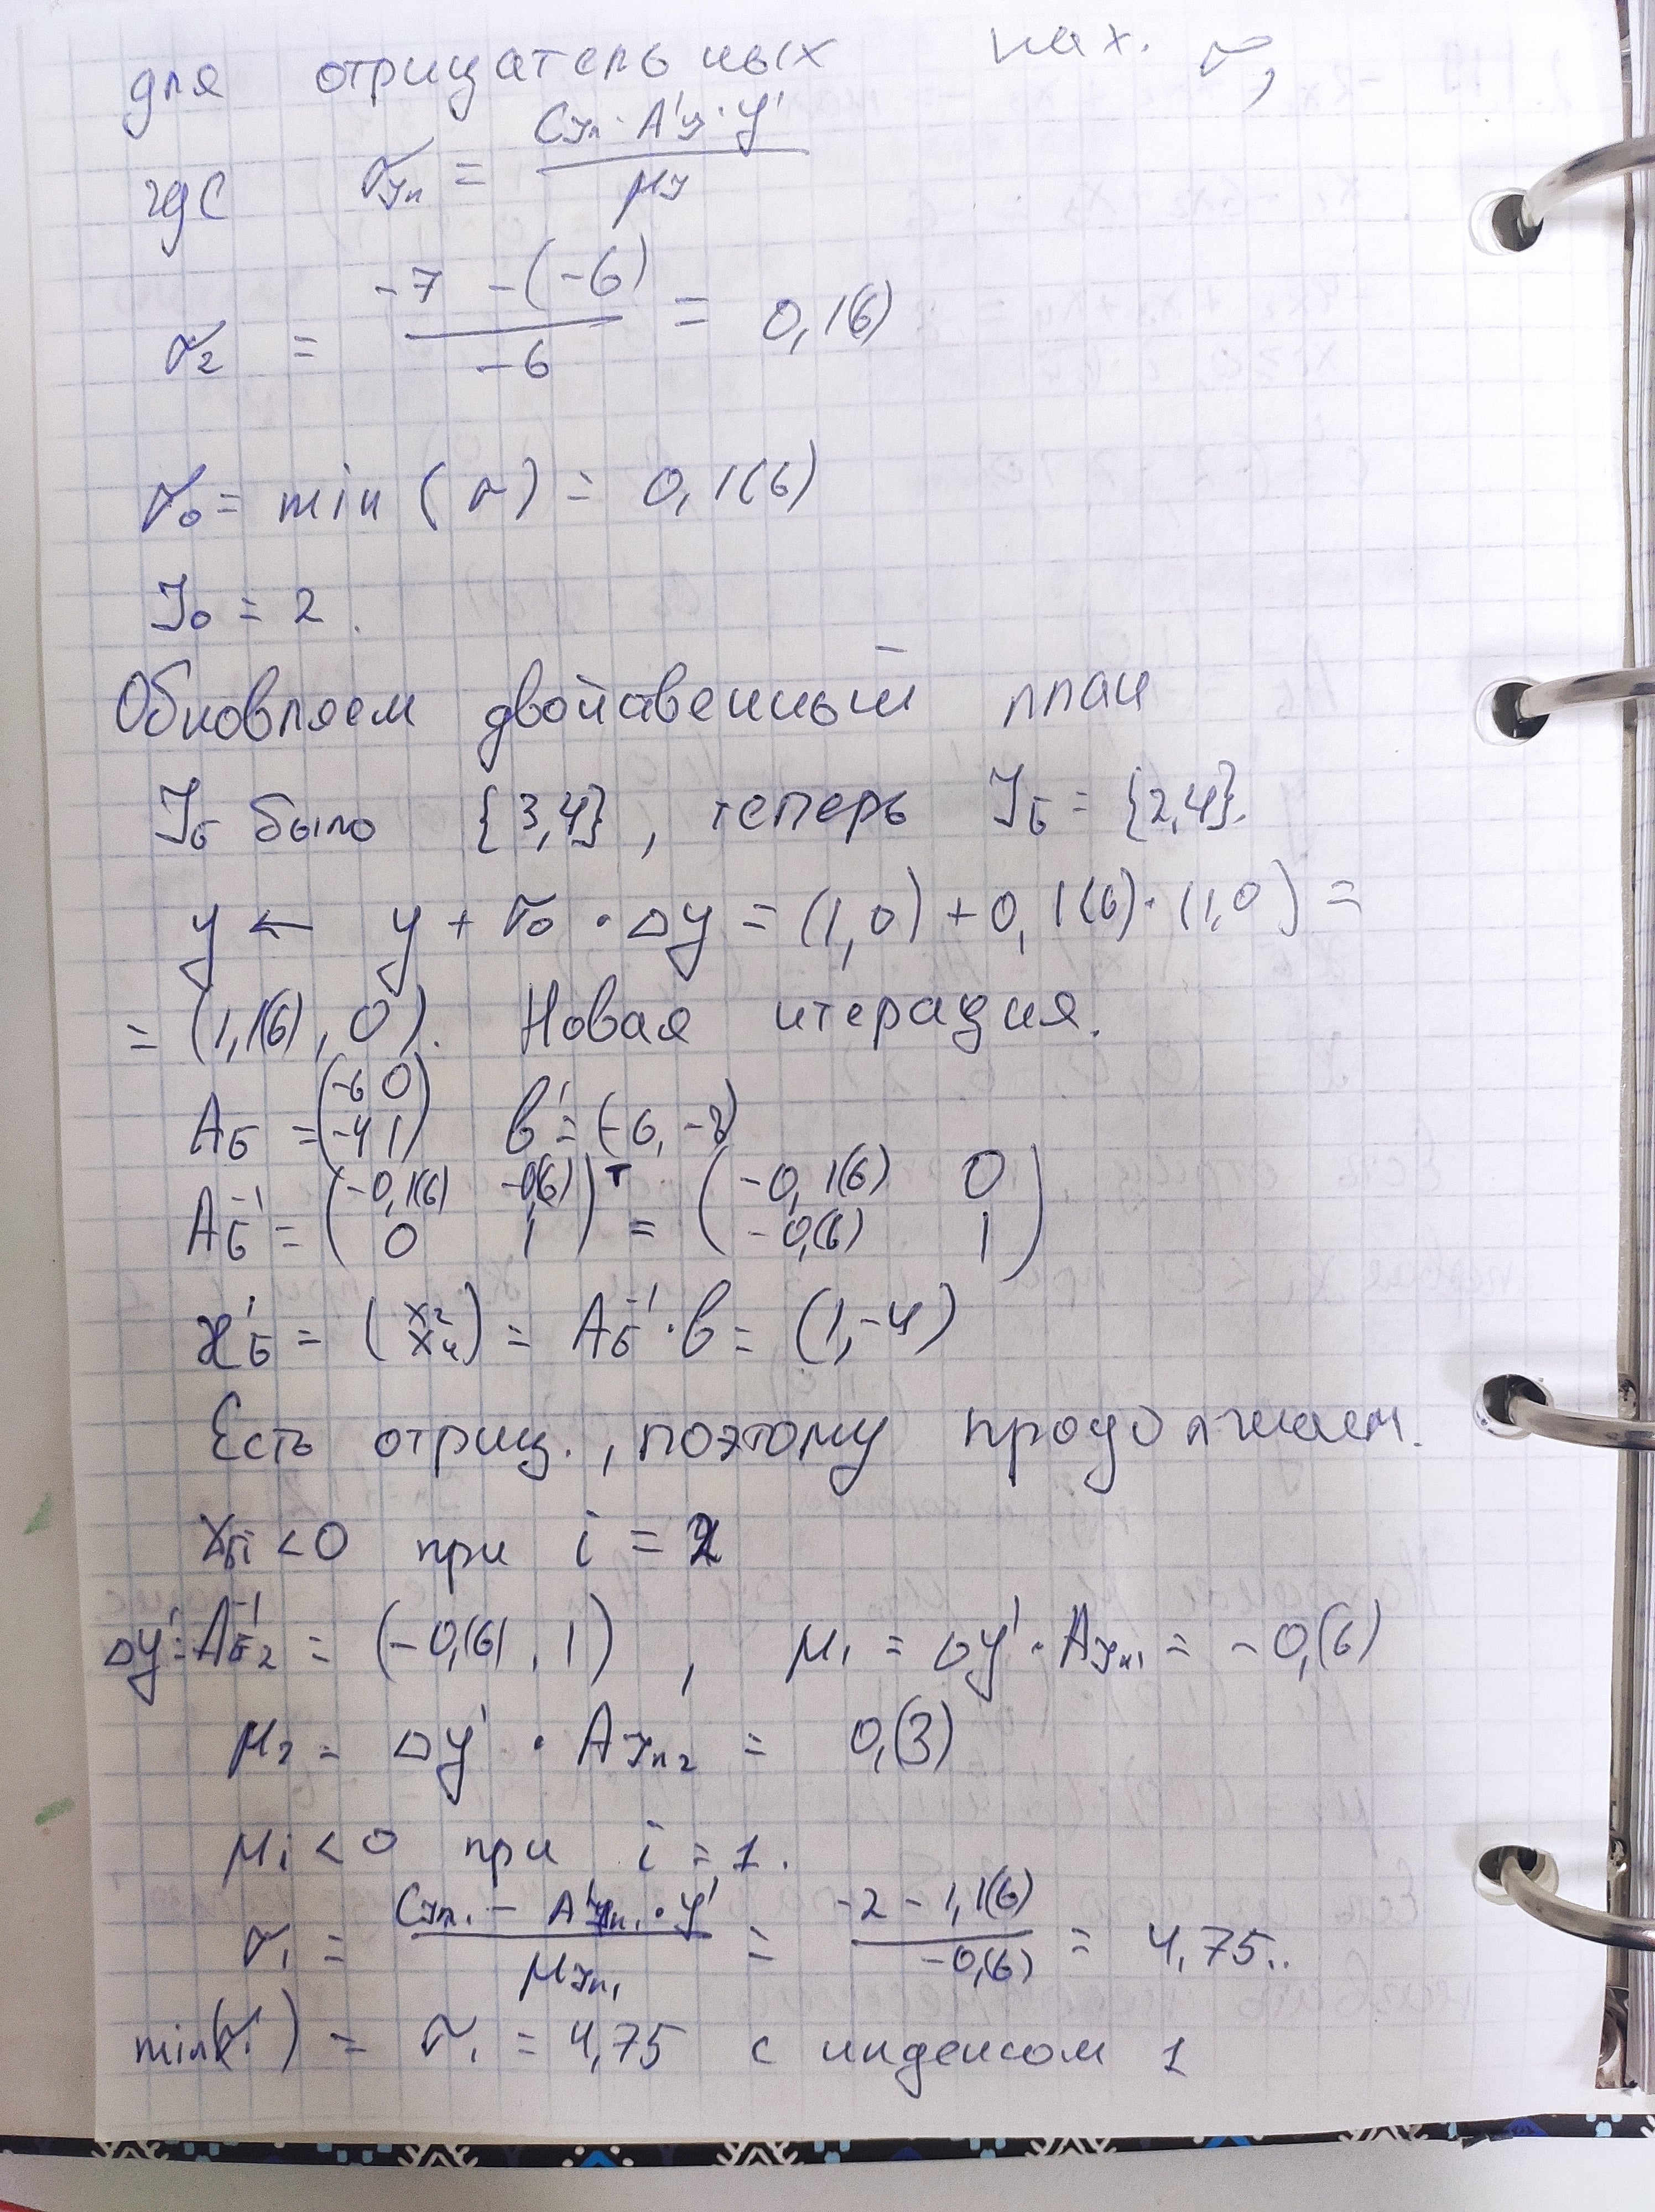 для отрицательных нах. σ,
где σ_Jн = (C_Jн · A'_J · y') / μ_J
σ₂ = (-7 -(-6)) / -6 = 0,1(6)
σ₀ = min (σ) = 0,1(6)
J₀ = 2.
Обновляем двойственный план
J_Б было {3,4}, теперь J_Б = {2,4}.
y ← y + σ₀ · Δy = (1,0) + 0,1(6) · (1,0) =
= (1,1(6), 0). Новая итерация.
A_Б = (-6 0; -4 1) b' = (-6, -8)
A_Б⁻¹ = (-0,1(6) -0,(6); 0 1)ᵀ = (-0,1(6) 0; -0,(6) 1)
æ'_Б = (x₂; x₄) = A_Б⁻¹ · b = (1, -4)
Есть отриц., поэтому продолжаем.
æ_Бi < 0 при i = 2
Δy' = A_Б⁻¹₂ = (-0,(6), 1), μ₁ = Δy' · A_Jн₁ = -0,(6)
μ₂ = Δy' · A_Jн₂ = 0,(3)
μ_i < 0 при i = 1.
σ₁ = (C_Jн₁ - A'_Jн₁ · y') / μ_Jн₁ = (-2 - 1,1(6)) / -0,(6) = 4,75..
min(σ_i) = σ₁ = 4,75 с индексом 1